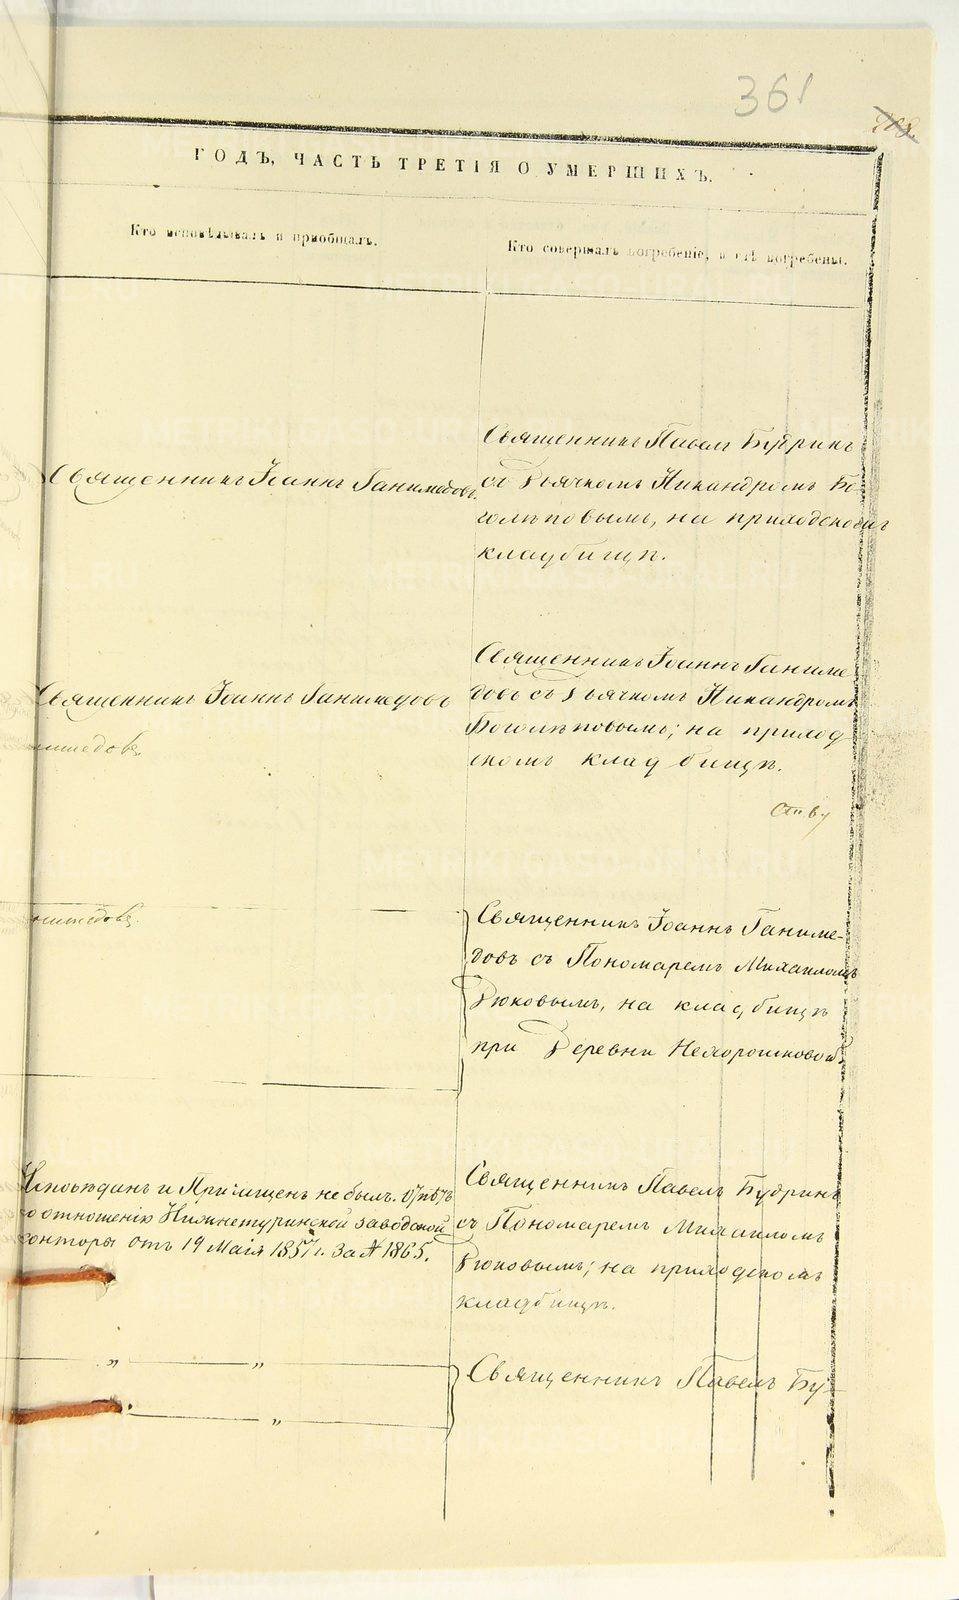 361
ГОДЪ, ЧАСТЬ ТРЕТІЯ О УМЕРШИХЪ.
Кто исповѣдывалъ и пріобщалъ.
Кто совершалъ погребеніе, и гдѣ погребены.
Священникъ Іоаннъ Ганимедовъ.
Священникъ Павелъ Будринъ
съ Дьячкомъ Никандромъ Бо-
голѣповымъ, на приходскомъ
кладбищѣ.
Священникъ Іоаннъ Ганимедовъ
Священникъ Іоаннъ Ганиме-
довъ съ Дьячкомъ Никандромъ
Боголѣповымъ; на приход-
скомъ кладбищѣ.
Священникъ Іоаннъ Ганиме-
довъ съ Пономаремъ Михаиломъ
Дюковымъ, на кладбищѣ
при Деревни Нехорошковой.
Исповѣданъ и Пріобщенъ не былъ.
по отношенію Нижнетуринской заводской
конторы отъ 19 Маія 1857 г. за № 1865.
Священникъ Павелъ Будринъ
съ Пономаремъ Михаиломъ
Дюковымъ; на приходскомъ
кладбищѣ.
„ „
„
Священникъ Павелъ Бу-
METRIKI.GASO-URAL.RU